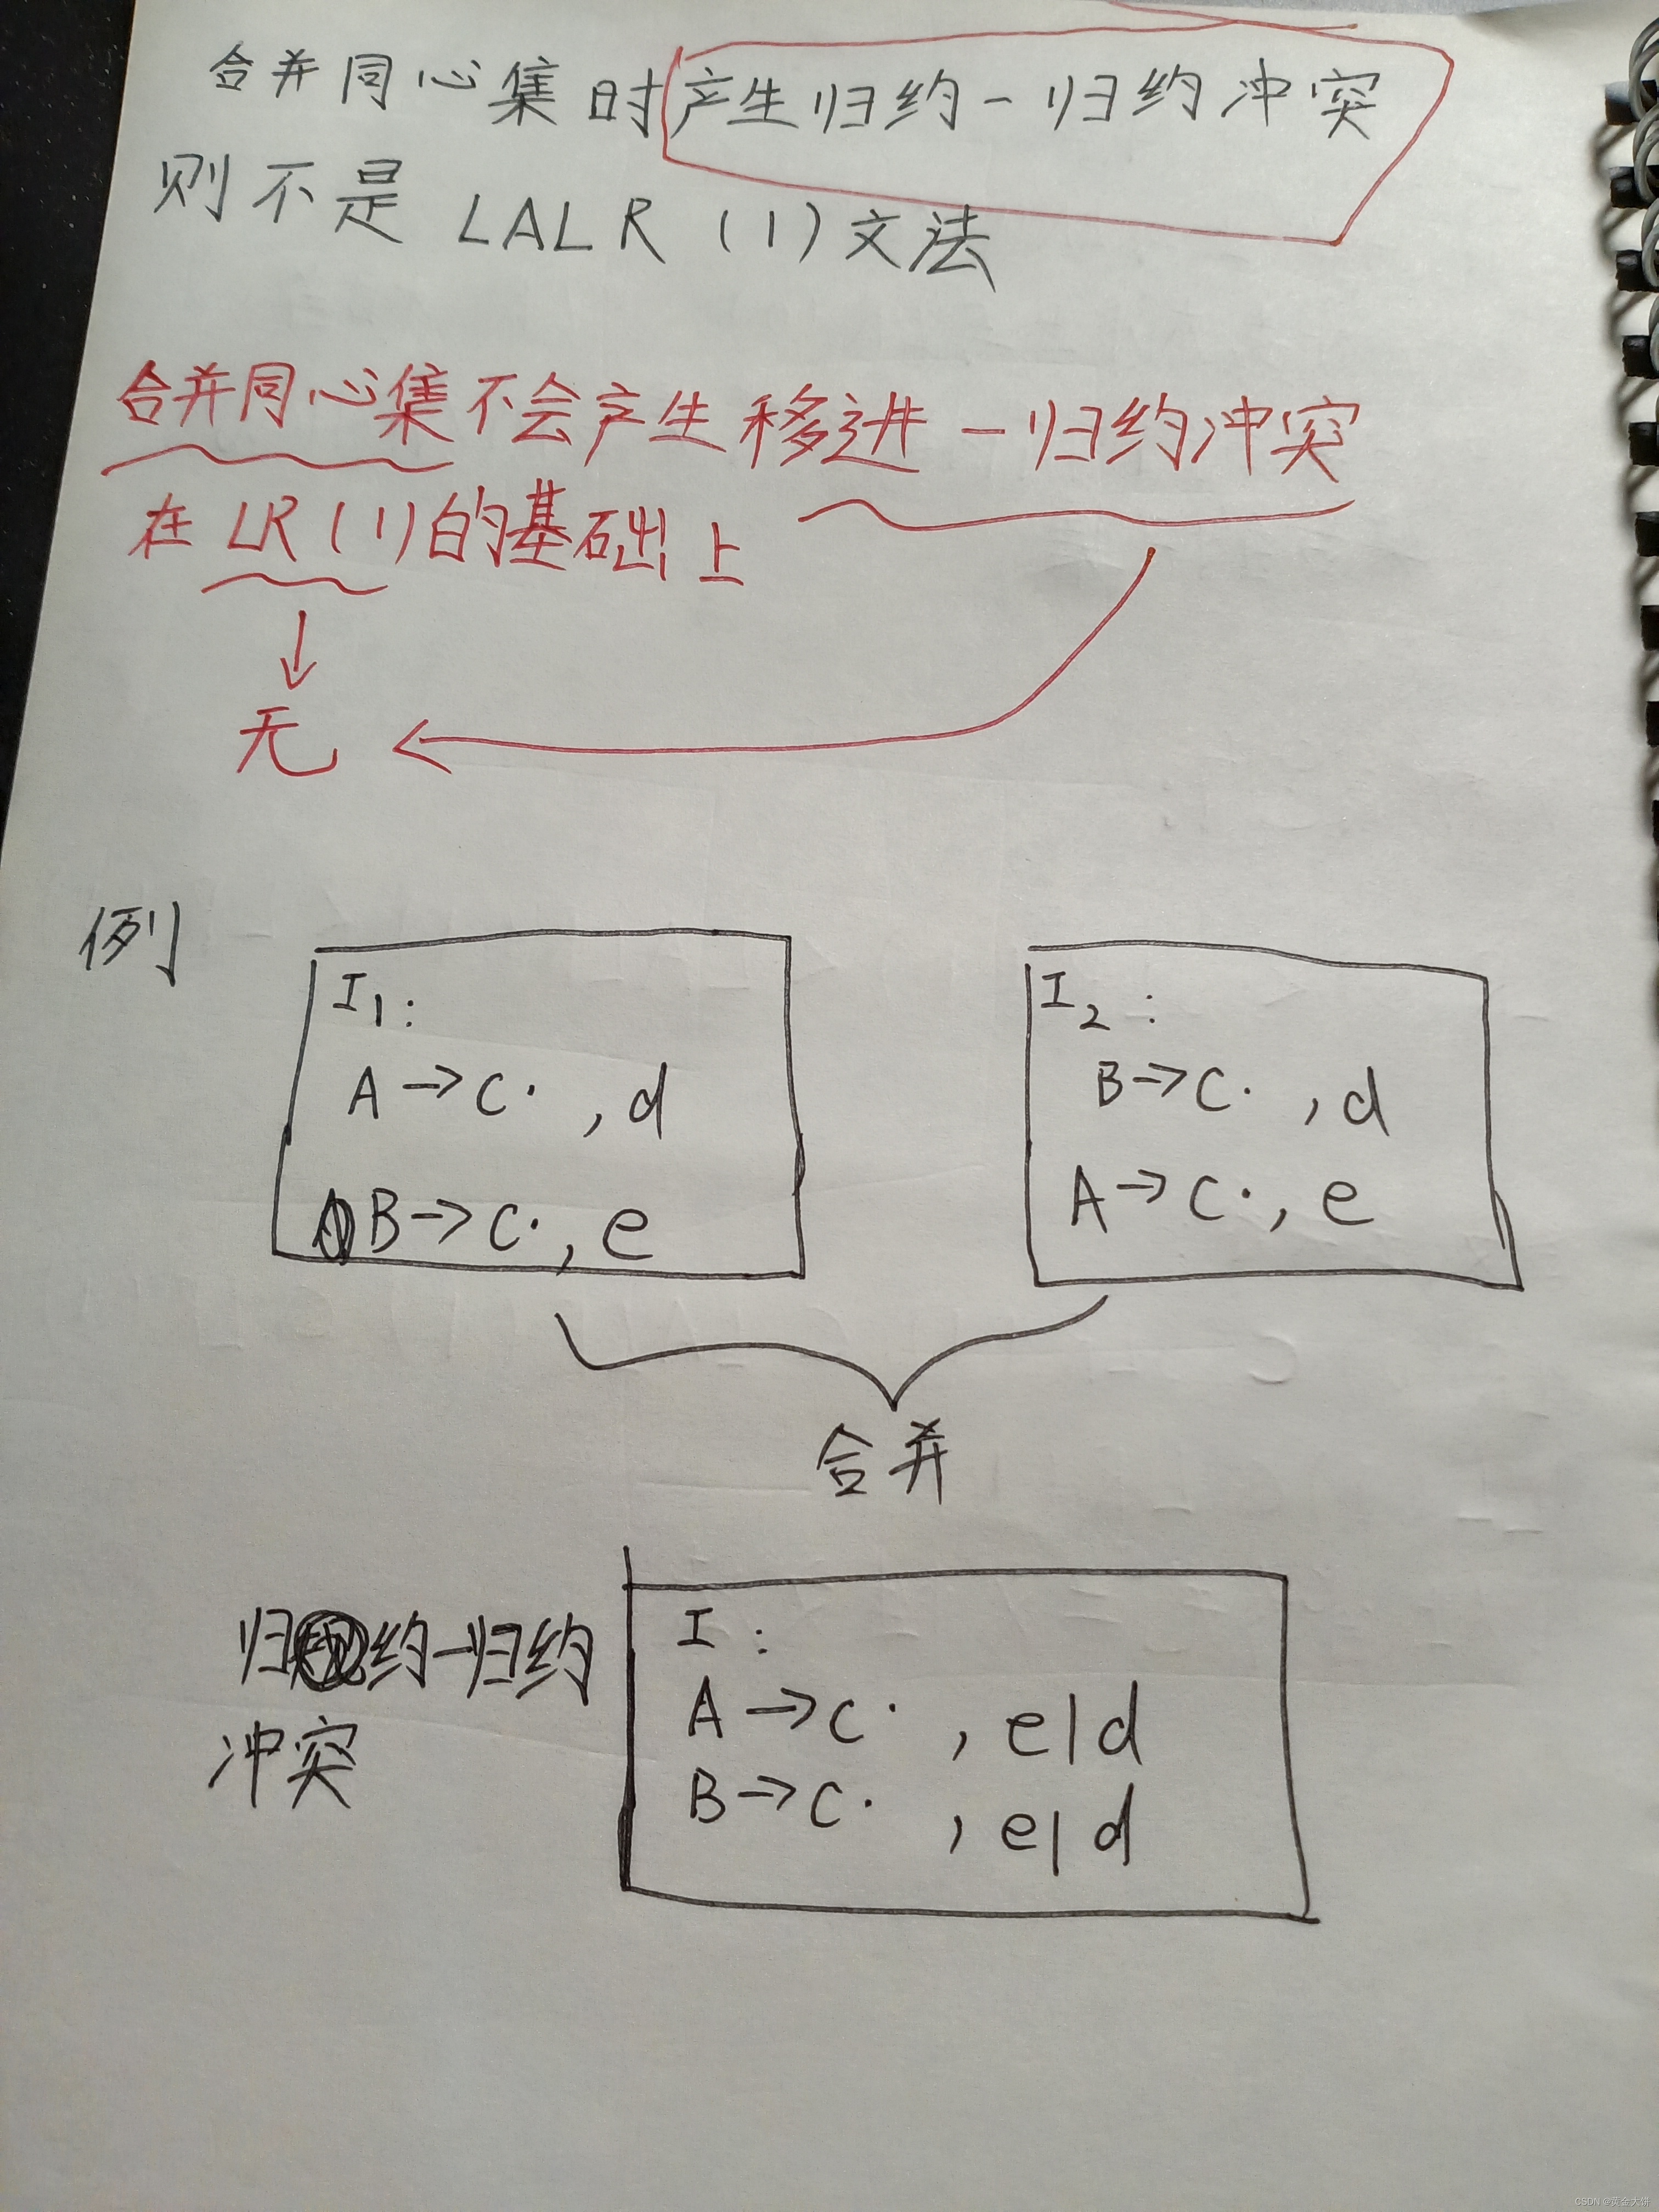 合并同心集时产生归约-归约冲突
则不是 LALR (1) 文法
合并同心集不会产生移进-归约冲突
在 LR (1) 的基础上
无
例
I₁:
A → c· , d
B → c· , e
I₂ :
B → c· , d
A → c· , e
合并
归约-归约
冲突
I :
A → c· , e|d
B → c· , e|d
CSDN @黄金大饼